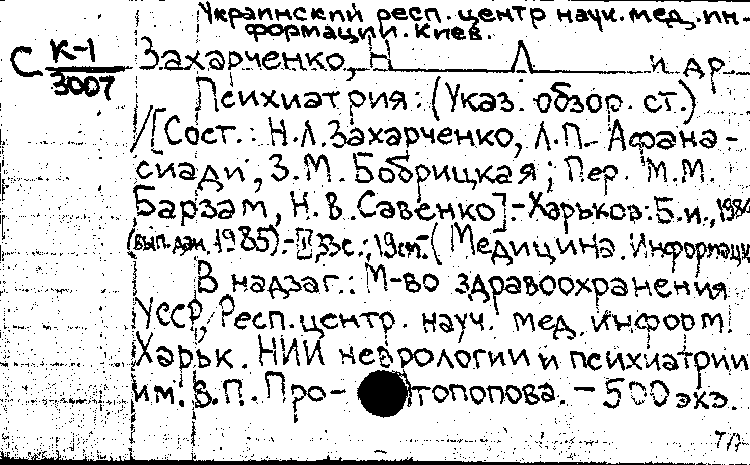 Украинский респ. центр наук. мед. ин-
формации. Киев.
С К-1
3007
Захарченко, Н Л и др
Психиатрия: (Указ. обзор. ст.)
/[Сост.: Н.Л. Захарченко, Л.П. Афана-
сиади, З.М. Бобрицкая; Пер. М.М.
Барзам, Н.В. Савенко].-Харьков: Б.и.,
(вып. дан. 1985).- 33с.; 19см.- (Медицина. Информац
В надзаг.: М-во здравоохранения
УССР, Респ. центр. науч. мед. информ.
Харьк. НИИ неврологии и психиатрии
им. В.П. Про- топопова. - 500 экз.